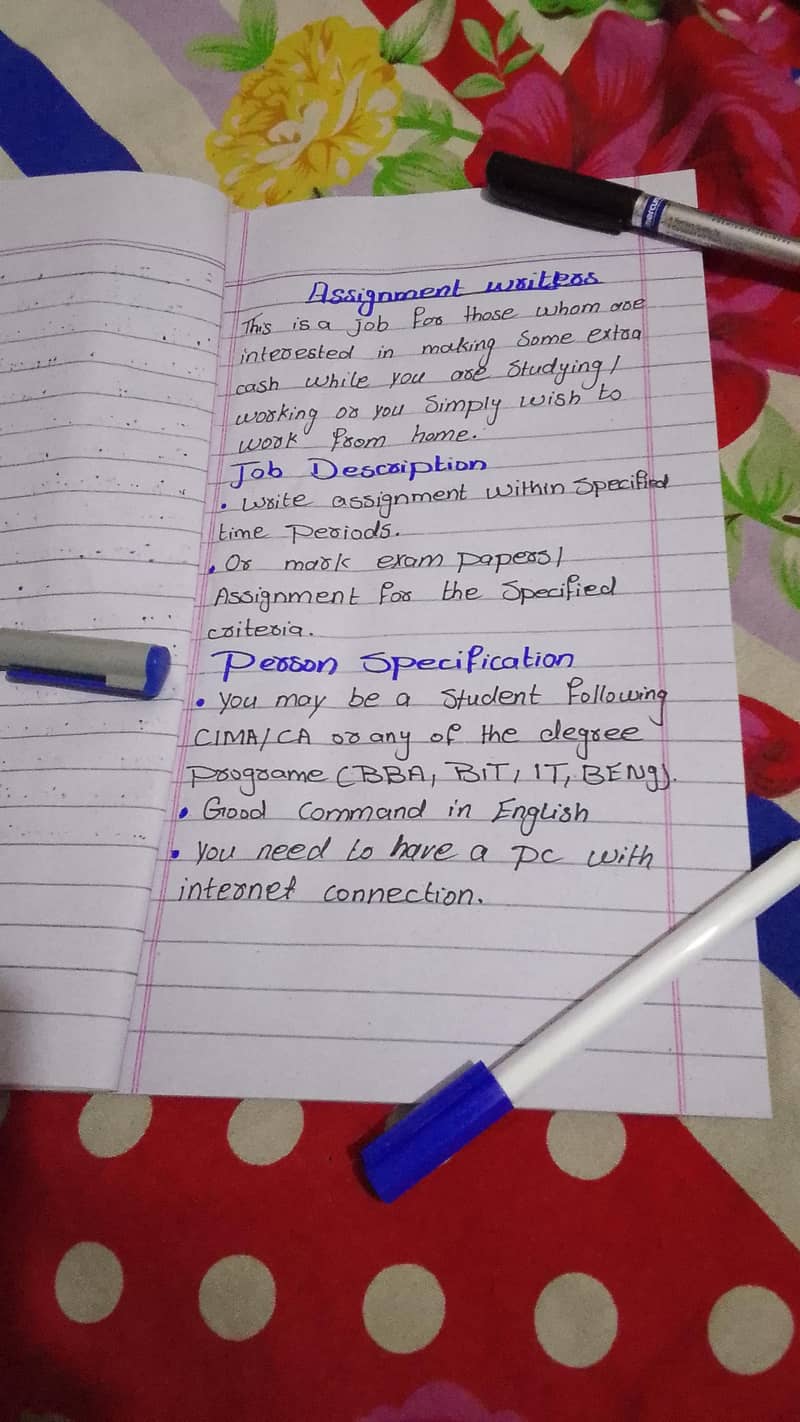 Assignment writers
This is a job for those whom are
interested in making some extra
cash while you are studying/
working or you simply wish to
work from home.
Job Description
• write assignment within specified
time periods.
• Or mark exam papers/
Assignment for the specified
criteria.
Person Specification
• you may be a student following
CIMA/CA or any of the degree
programe (BBA, BIT, IT, BENg).
• Good command in English
• you need to have a pc with
internet connection.